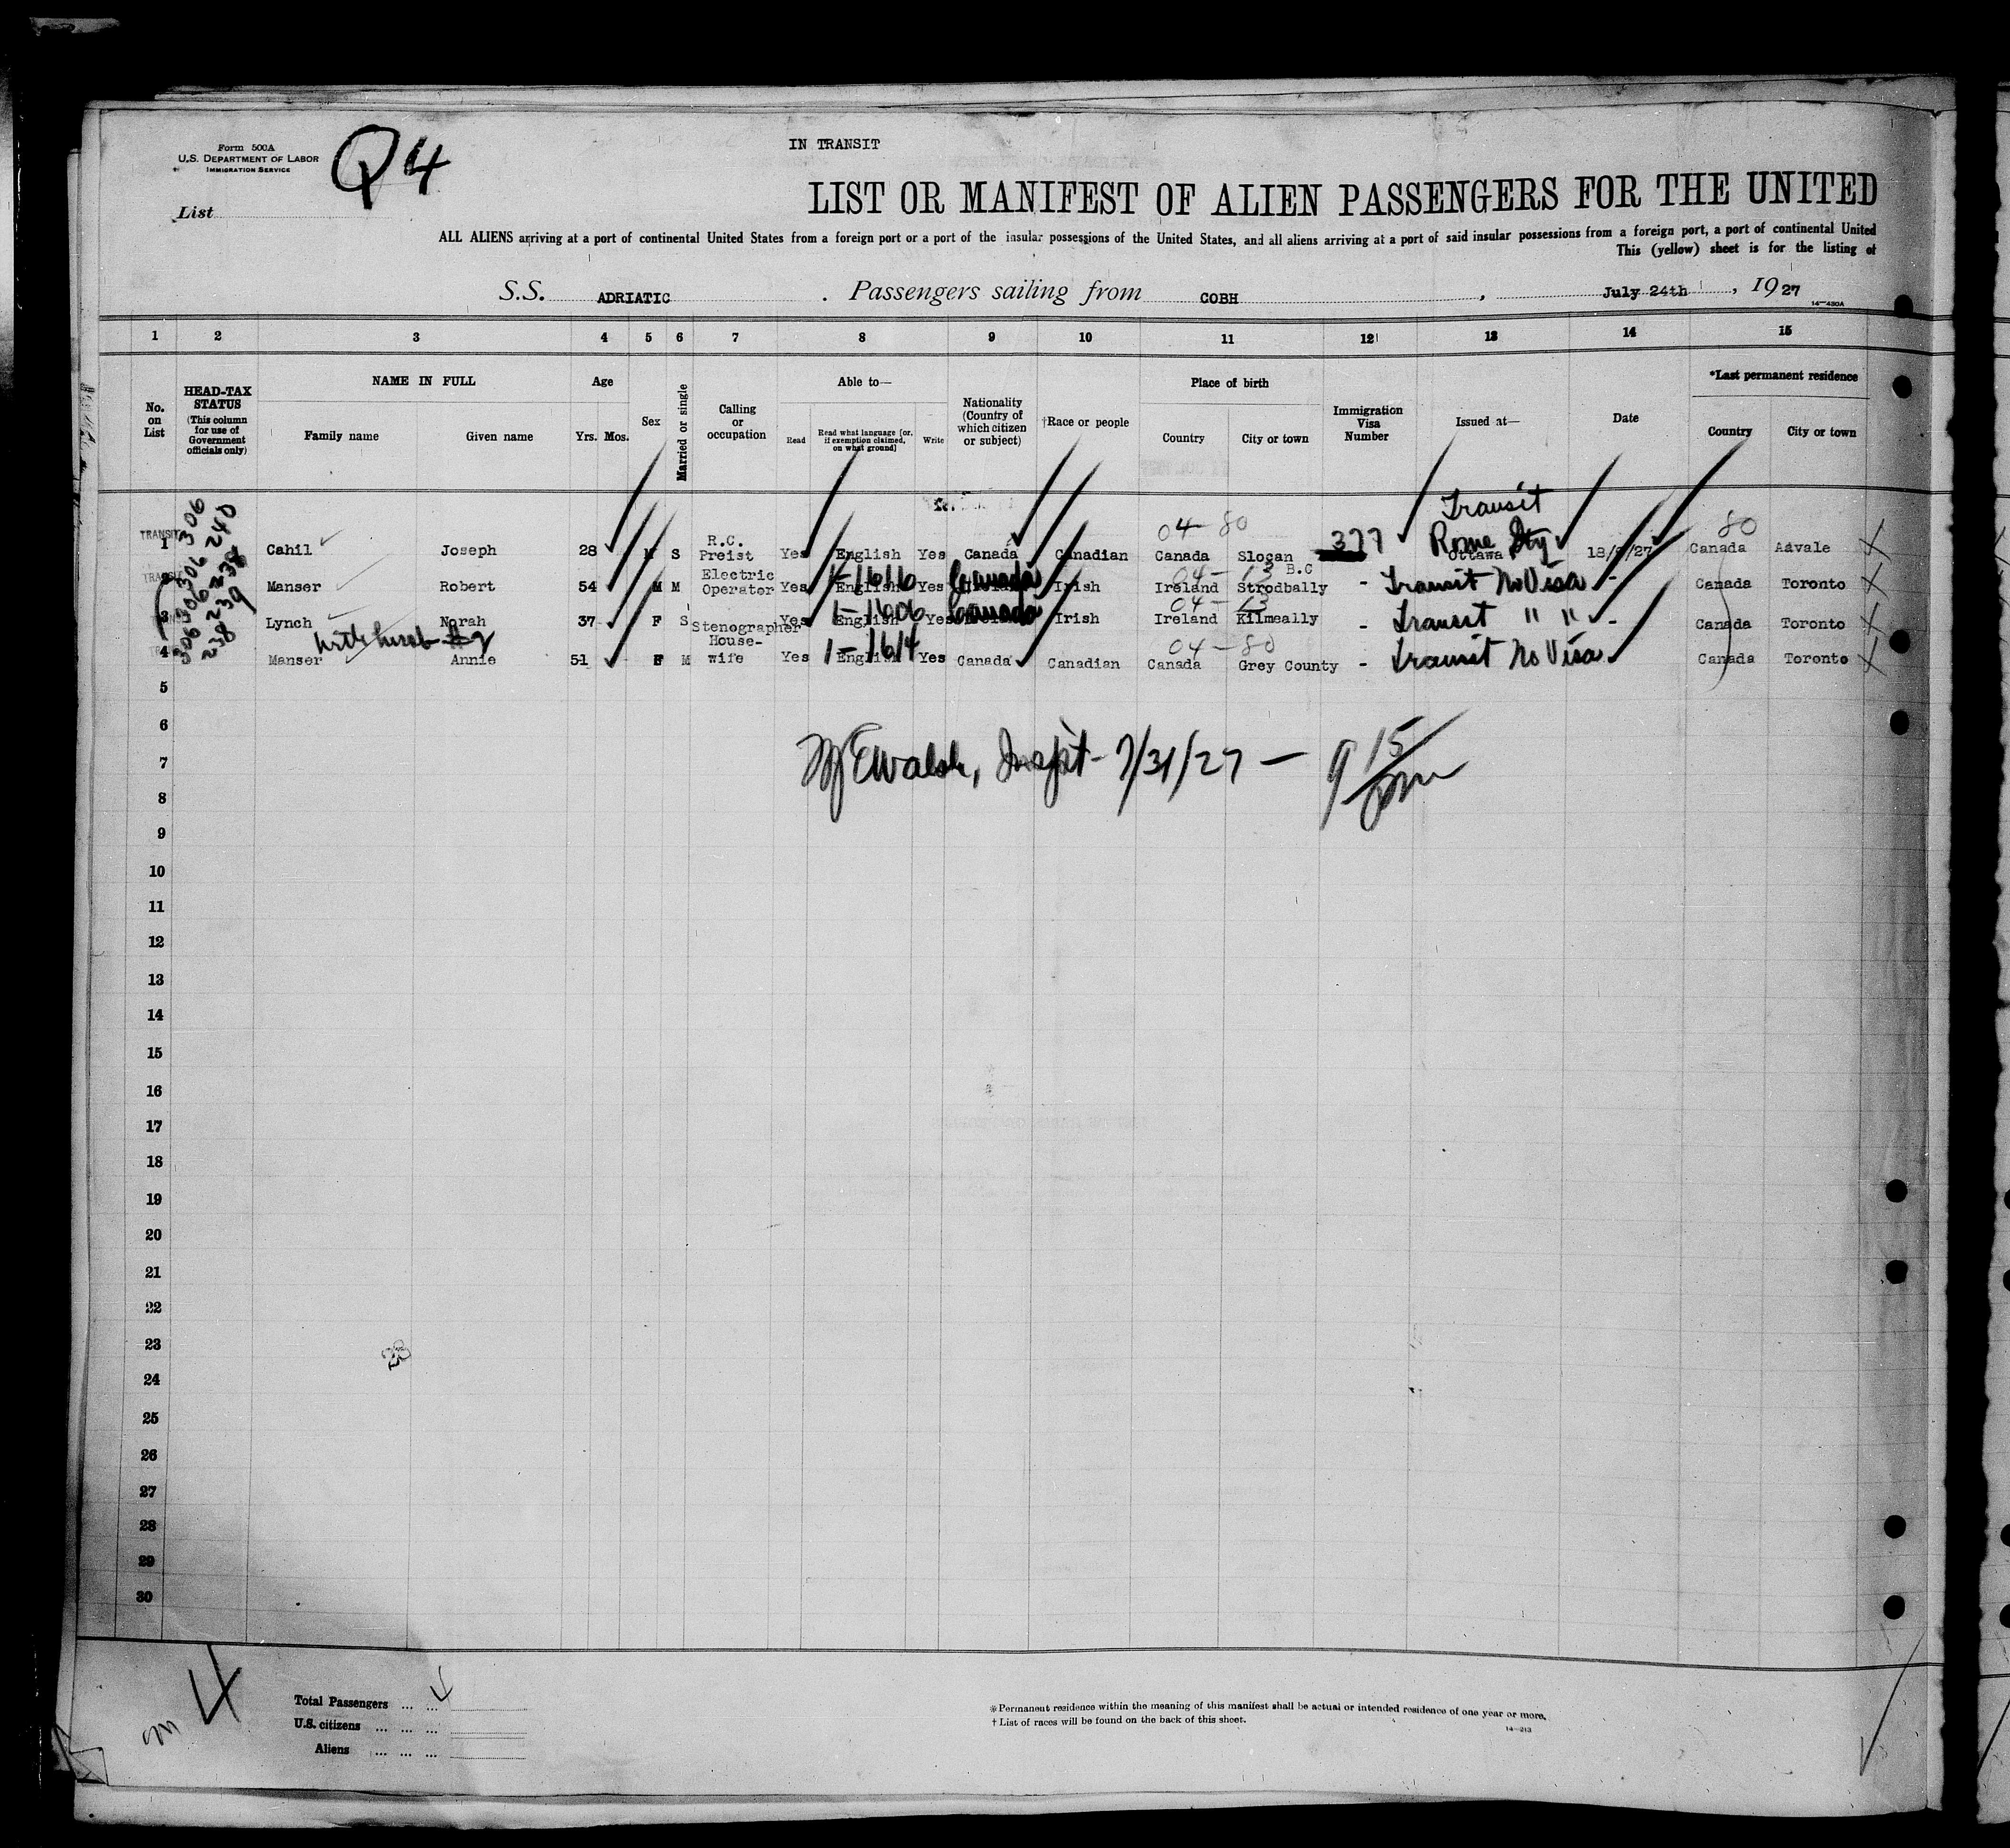 Form 500A
U.S. DEPARTMENT OF LABOR
IMMIGRATION SERVICE
Q4
IN TRANSIT
List
LIST OR MANIFEST OF ALIEN PASSENGERS FOR THE UNITED
ALL ALIENS arriving at a port of continental United States from a foreign port or a port of the insular possessions of the United States, and all aliens arriving at a port of said insular possessions from a foreign port, a port of continental United
This (yellow) sheet is for the listing of
S.S. ADRIATIC. Passengers sailing from COBH, July 24th, 1927
14-430A
1 2 3 4 5 6 7 8 9 10 11 12 13 14 15
No. on List
HEAD-TAX STATUS (This column for use of Government officials only)
NAME IN FULL
Family name Given name
Age
Yrs. Mos.
Sex
Married or single
Calling or occupation
Able to—
Read Read what language [or, if exemption claimed, on what ground] Write
Nationality (Country of which citizen or subject)
†Race or people
Place of birth
Country City or town
Immigration Visa Number
Issued at—
Date
*Last permanent residence
Country City or town
306 240
306 238
306 239
306 238
Transit
04-80 80
TRANSIT 1 Cahil Joseph 28 M S R.C. Preist Yes English Yes Canada Canadian Canada Slocan B.C 377 Rome Ottawa 18/8/27 Canada Advale
04-13
2 Manser Robert 54 M M Electric Operator Yes English 1-1616 Yes Canada Irish Ireland Strodbally - Transit No Visa - Canada Toronto
04-13
3 Lynch Norah 37 F S Stenographer Yes English 1-1606 Yes Canada Irish Ireland Kilmeally - Transit " " - Canada Toronto
with husb #2
04-80
4 Manser Annie 51 F M House-wife Yes English 1-1614 Yes Canada Canadian Canada Grey County - Transit No Visa Canada Toronto
5
6
7
8
9
10
11
12
13
14
15
16
17
18
19
20
21
22
23
24
25
26
27
28
29
30
Walsh, Inspt - 7/31/27 — 9 15
4
Total Passengers ... ...
U.S. citizens ... ... ...
Aliens ... ... ...
*Permanent residence within the meaning of this manifest shall be actual or intended residence of one year or more.
† List of races will be found on the back of this sheet.
14-213